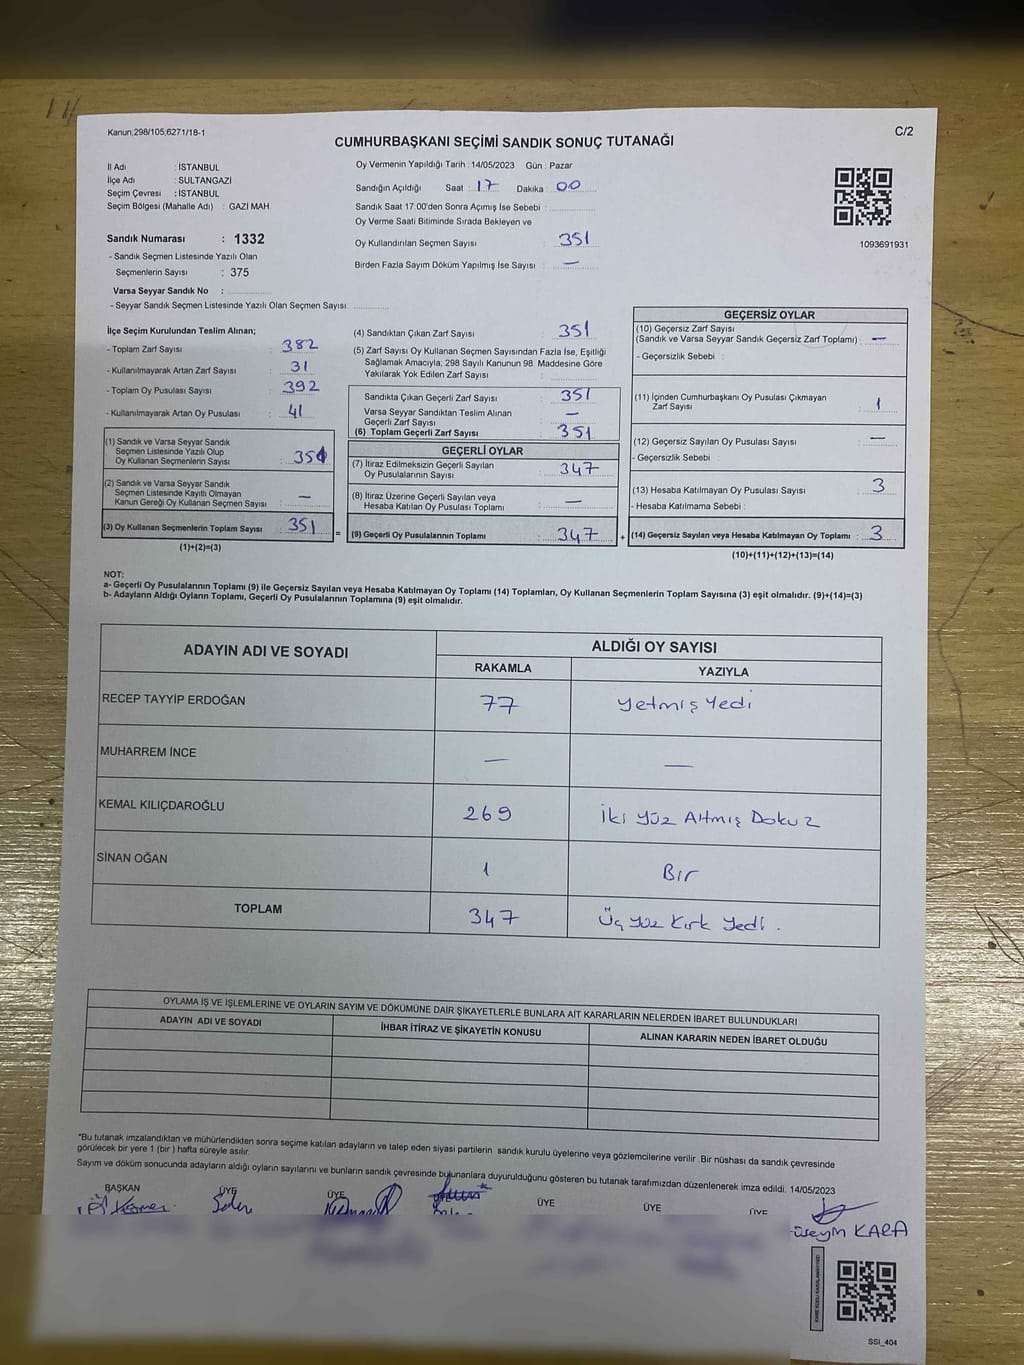 Kanun;298/105,6271/18-1
C/2
CUMHURBAŞKANI SEÇİMİ SANDIK SONUÇ TUTANAĞI
İl Adı : İSTANBUL
İlçe Adı : SULTANGAZİ
Seçim Çevresi : İSTANBUL
Seçim Bölgesi (Mahalle Adı) : GAZİ MAH.
Sandık Numarası : 1332
- Sandık Seçmen Listesinde Yazılı Olan
Seçmenlerin Sayısı : 375
Varsa Seyyar Sandık No :
- Seyyar Sandık Seçmen Listesinde Yazılı Olan Seçmen Sayısı:
Oy Vermenin Yapıldığı Tarih : 14/05/2023 Gün : Pazar
Sandığın Açıldığı Saat : 17 Dakika : 00
Sandık Saat 17:00'den Sonra Açımış İse Sebebi :
Oy Verme Saati Bitiminde Sırada Bekleyen ve
Oy Kullandırılan Seçmen Sayısı : 351
Birden Fazla Sayım Döküm Yapılmış İse Sayısı : —
1093691931
İlçe Seçim Kurulundan Teslim Alınan;
- Toplam Zarf Sayısı : 382
- Kullanılmayarak Artan Zarf Sayısı : 31
- Toplam Oy Pusulası Sayısı : 392
- Kullanılmayarak Artan Oy Pusulası : 41
(1) Sandık ve Varsa Seyyar Sandık
Seçmen Listesinde Yazılı Olup
Oy Kullanan Seçmenlerin Sayısı : 351
(2) Sandık ve Varsa Seyyar Sandık
Seçmen Listesinde Kayıtlı Olmayan
Kanun Gereği Oy Kullanan Seçmen Sayısı : —
(3) Oy Kullanan Seçmenlerin Toplam Sayısı : 351
(1)+(2)=(3)
(4) Sandıktan Çıkan Zarf Sayısı : 351
(5) Zarf Sayısı Oy Kullanan Seçmen Sayısından Fazla İse, Eşitliği
Sağlamak Amacıyla, 298 Sayılı Kanunun 98. Maddesine Göre
Yakılarak Yok Edilen Zarf Sayısı :
Sandıkta Çıkan Geçerli Zarf Sayısı : 351
Varsa Seyyar Sandıktan Teslim Alınan
Geçerli Zarf Sayısı : —
(6) Toplam Geçerli Zarf Sayısı : 351
GEÇERLİ OYLAR
(7) İtiraz Edilmeksizin Geçerli Sayılan
Oy Pusulalarının Sayısı : 347
(8) İtiraz Üzerine Geçerli Sayılan veya
Hesaba Katılan Oy Pusulası Toplamı : —
= (9) Geçerli Oy Pusulalarının Toplamı : 347 +
GEÇERSİZ OYLAR
(10) Geçersiz Zarf Sayısı
(Sandık ve Varsa Seyyar Sandık Geçersiz Zarf Toplamı) : —
- Geçersizlik Sebebi :
(11) İçinden Cumhurbaşkanı Oy Pusulası Çıkmayan
Zarf Sayısı : 1
(12) Geçersiz Sayılan Oy Pusulası Sayısı : —
- Geçersizlik Sebebi :
(13) Hesaba Katılmayan Oy Pusulası Sayısı : 3
- Hesaba Katılmama Sebebi :
(14) Geçersiz Sayılan veya Hesaba Katılmayan Oy Toplamı : 3
(10)+(11)+(12)+(13)=(14)
NOT:
a- Geçerli Oy Pusulalarının Toplamı (9) ile Geçersiz Sayılan veya Hesaba Katılmayan Oy Toplamı (14) Toplamları, Oy Kullanan Seçmenlerin Toplam Sayısına (3) eşit olmalıdır. (9)+(14)=(3)
b- Adayların Aldığı Oyların Toplamı, Geçerli Oy Pusulalarının Toplamına (9) eşit olmalıdır.
ADAYIN ADI VE SOYADI
ALDIĞI OY SAYISI
RAKAMLA YAZIYLA
RECEP TAYYİP ERDOĞAN 77 Yetmiş Yedi
MUHARREM İNCE — —
KEMAL KILIÇDAROĞLU 269 İki Yüz Altmış Dokuz
SİNAN OĞAN 1 Bir
TOPLAM 347 Üç Yüz Kırk Yedi.
OYLAMA İŞ VE İŞLEMLERİNE VE OYLARIN SAYIM VE DÖKÜMÜNE DAİR ŞİKAYETLERLE BUNLARA AİT KARARLARIN NELERDEN İBARET BULUNDUKLARI
ADAYIN ADI VE SOYADI İHBAR İTİRAZ VE ŞİKAYETİN KONUSU ALINAN KARARIN NEDEN İBARET OLDUĞU
*Bu tutanak imzalandıktan ve mühürlendikten sonra seçime katılan adayların ve talep eden siyasi partilerin sandık kurulu üyelerine veya gözlemcilerine verilir. Bir nüshası da sandık çevresinde
görülecek bir yere 1 (bir) hafta süreyle asılır.
Sayım ve döküm sonucunda adayların aldığı oyların sayılarını ve bunların sandık çevresinde bulunanlara duyurulduğunu gösteren bu tutanak tarafımızdan düzenlenerek imza edildi. 14/05/2023
BAŞKAN ÜYE ÜYE ÜYE ÜYE ÜYE
KARA
SSI_404